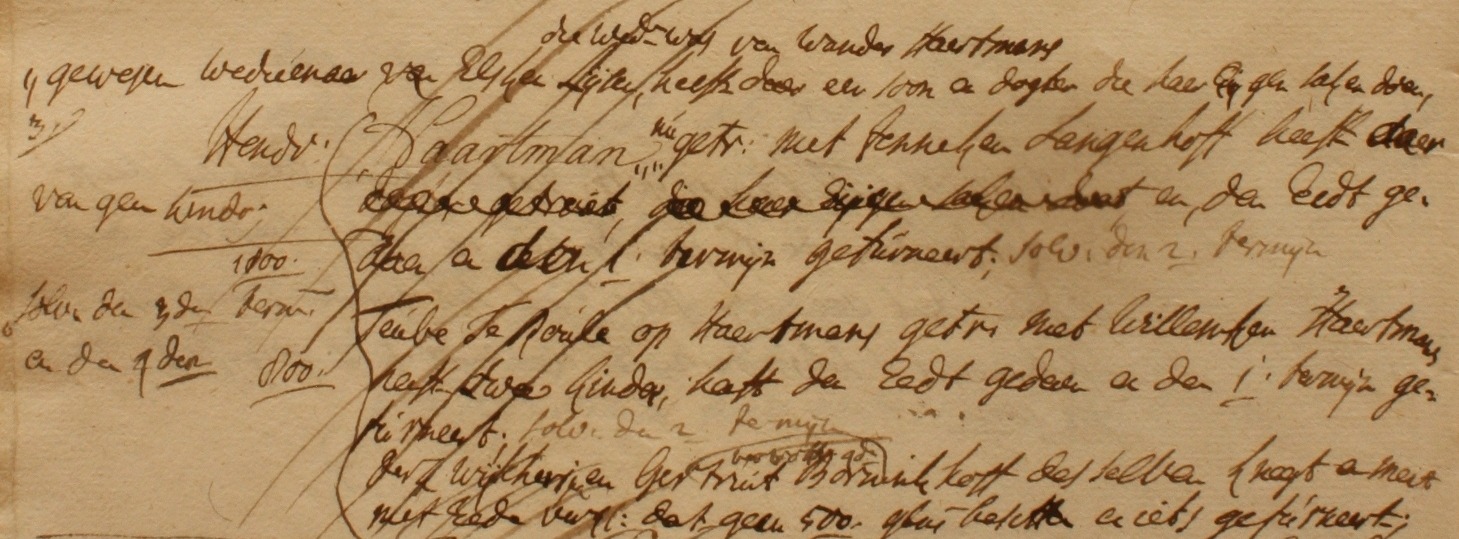 die wed. was van Wander Haertmans
gewesen weduenaer van Elsken heeft daer een soon en dogter die haer eijgen saken doen,
3.
Hendr: Haartman nu getr: met Jenneken Langenhoff heeft daer
van geen kinder; die haer eijgen saken doet en den Eedt ge-
1800. daen en den 1. termijn gefurneert; solv. den 2. termijn
solv. den 3den term.
Teube Te Roule op Haertmans getr. met Willemken Haertmans
en den 4den 800. heeft twee kinder, heeft den Eedt gedaen en den 1. termijn ge-
furneert; solv. den 2 termijn
Gertruit Borninkhoff desselven knegt en meit
met Eede dat geen 500. gl. en iets gefurneert;